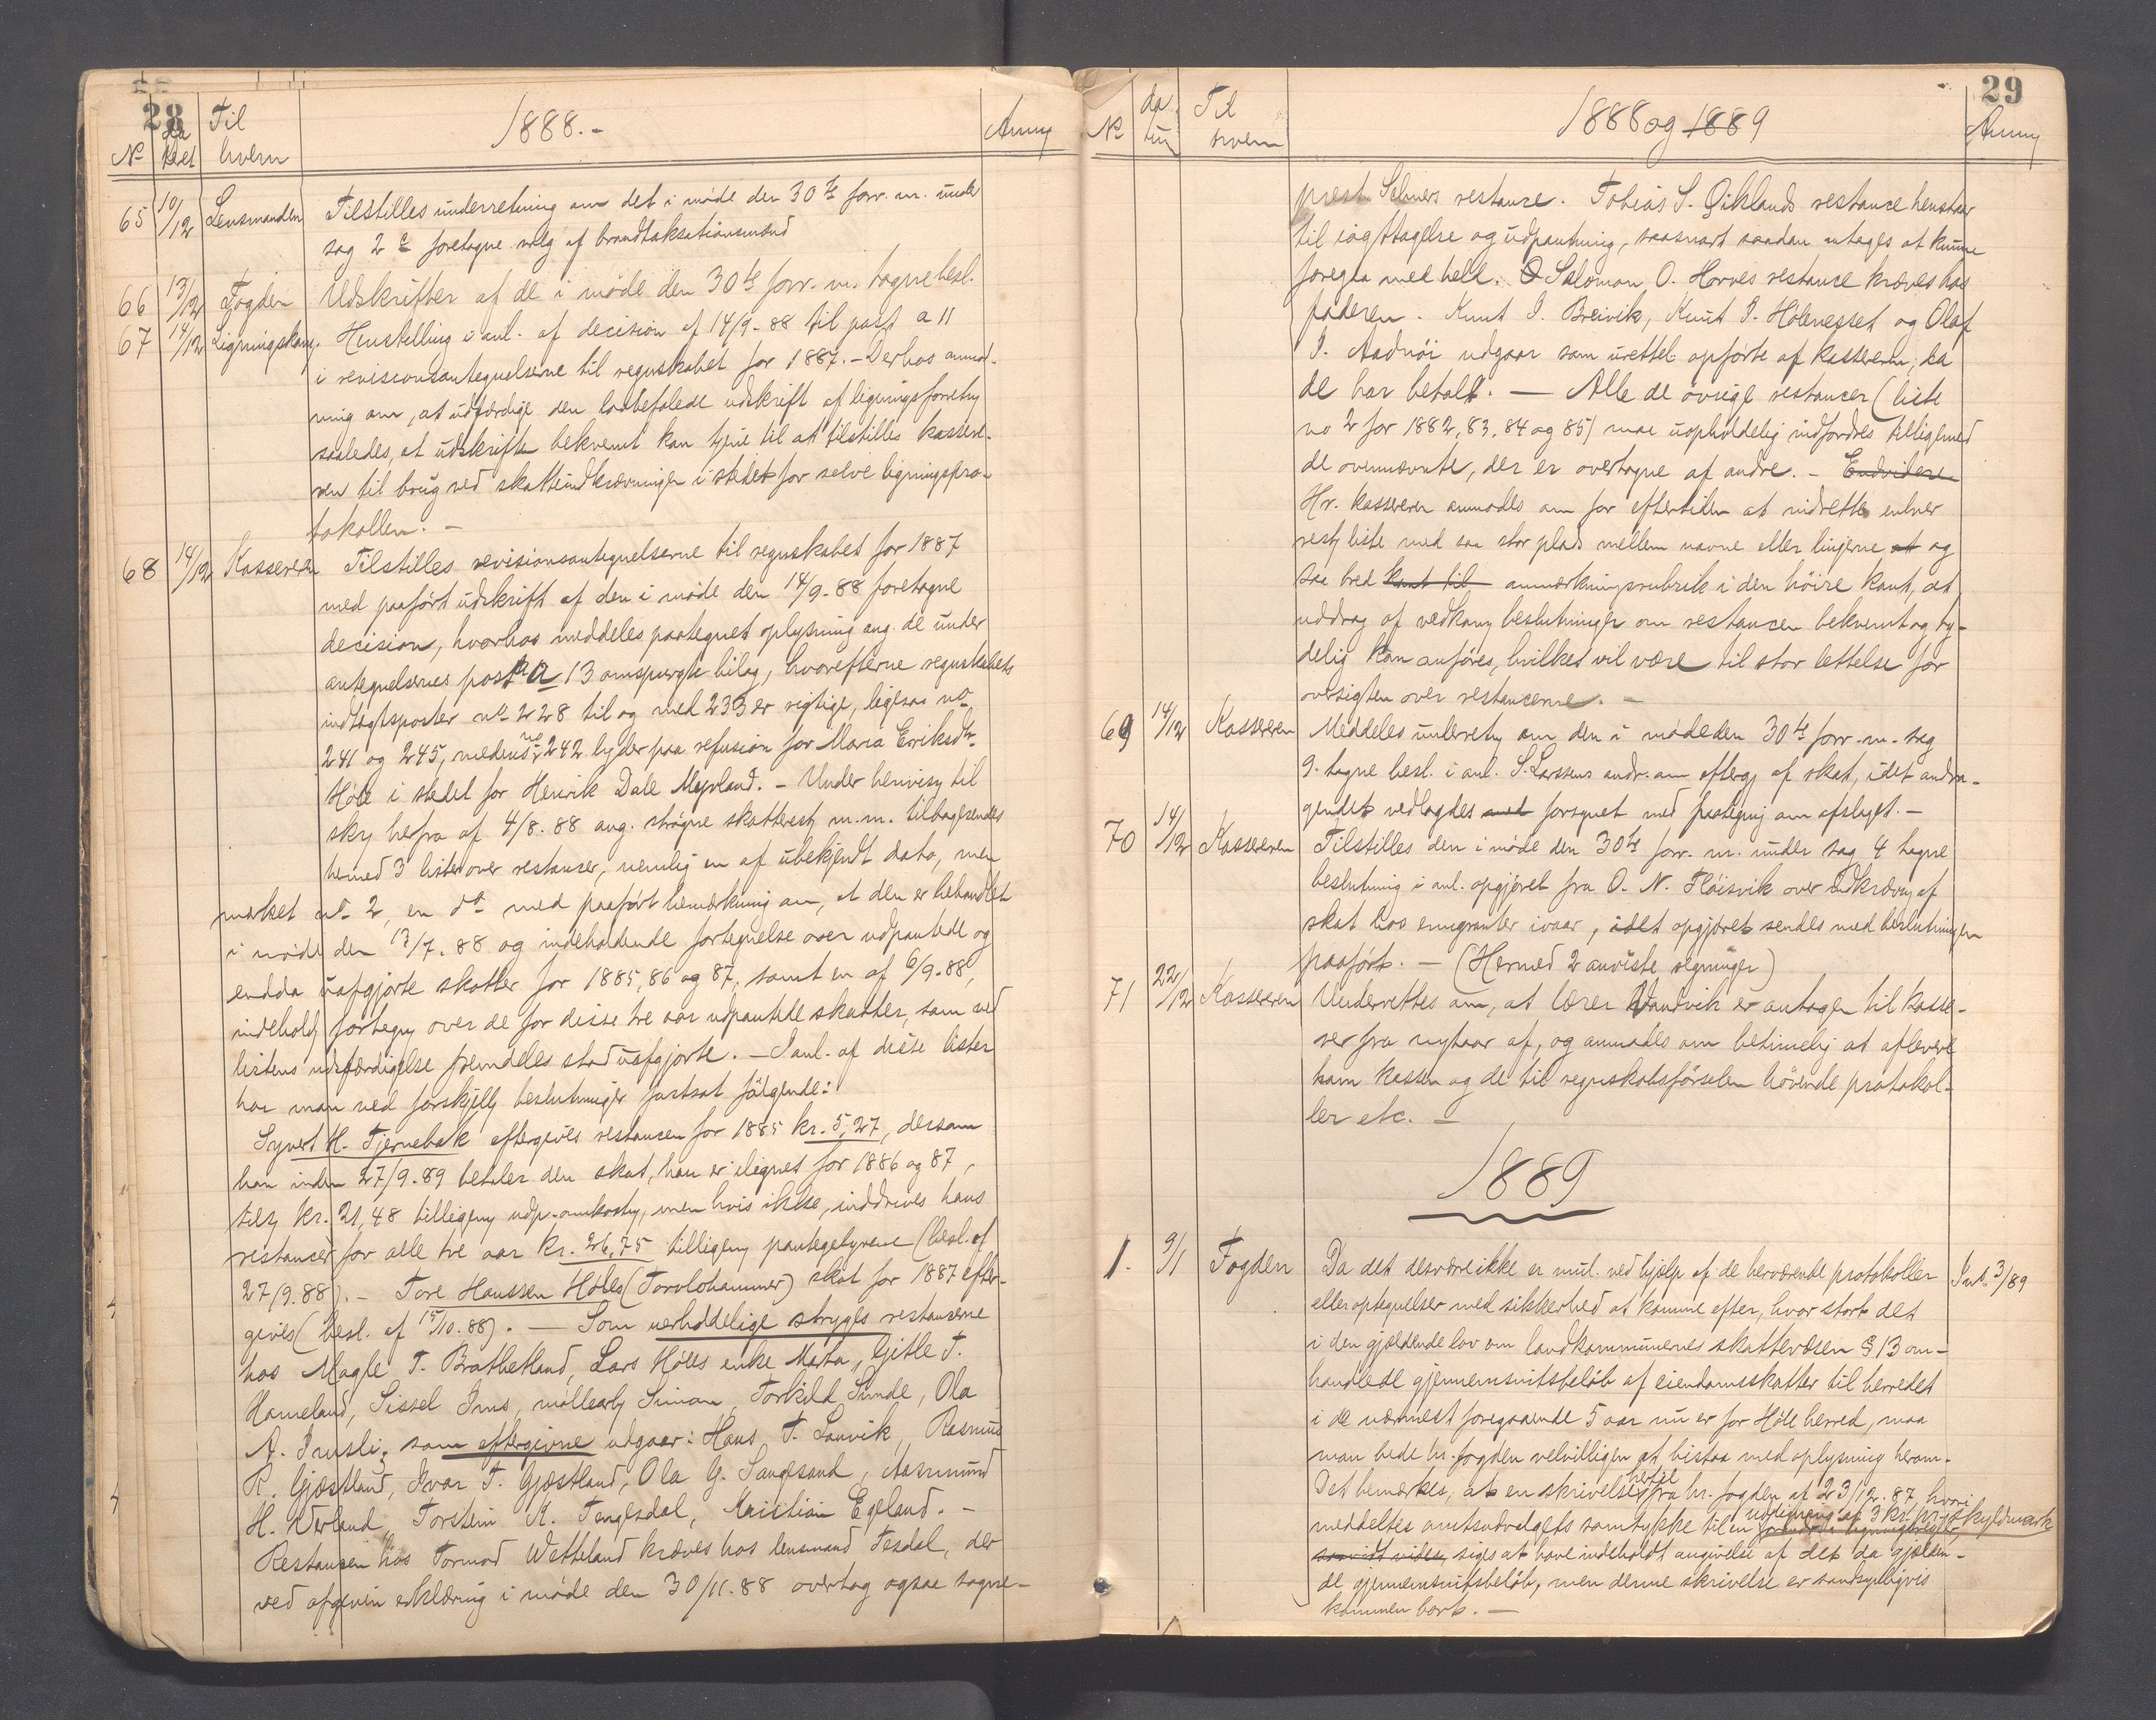 28
No Da teret Til hvem 1888.- Anm
65 10/12 Lensmanden Tilstilles underretning om det i møde den 30te forr. m. under
sag 2 foretagne valg af brandtaksationsmænd
66 13/12 Fogden Udskrifter af de i møde den 30te forr. m. tagne besl.
67 14/12 Ligningskom. Henstilling i anl. af decision af 14/9-88 til post a 11
i revisionsantegnelserne til regnskabet for 1887. - Derhos anmod-
ning om, at udfærdige den lovbefalede udskrift af ligningsforretng
saaledes, at udskriften bekvemt kan tjene til at tilstilles kassere-
ren til brug ved skatteindkrævningen i stedet for selve ligningspro-
tokollen. -
68 14/12 Kassereren Tilstilles revisionsantegnelserne til regnskabet for 1887
med paaført udskrift af den i møde den 14/9-88 foretagne
decision, hvorhos meddeles paategnet oplysning ang. de under
antegnelsernes post a 13 omspurgte bilag, hvorefterne regnskabets
indtægtsposter no 228 til og med 233 er rigtige, ligesaa no
241 og 245, medens no 242 lyder paa refusion for Maria Eriksdtr.
Høle i stedet for Henrik Dale Myrland. - Under henvisng til
skr herfra af 4/8.88 ang. strøgne skatterestr m.m. tilbagesendes
hermed 3 lister over restanser, nemlig en af ubekjendt dato, men
mærket no 2, en do med paaført bemærkning om, at den er behandlet
i møde den 17/7.88 og indeholdende fortegnelse over udpantede og
endda uafgjorte skatter for 1885, 86 og 87, samt en af 6/9-88,
indeholdg fortegng over de for disse tre aar udpantede skatter, som ved
listens udfærdigelse fremdeles stod uafgjorte. - I anl. af disse lister
har man ved forskjellg beslutninger fastsat følgende:
Syvert H. Tjernebak eftergives restancen for 1885 kr. 5,27, dersom
han inden 27/9.89 betaler den skat, han er ilignet for 1886 og 87,
tils kr. 21,48 tilligem udp.omkostn, men hvis ikke, inddrives hans
restancer for alle tre aar kr. 26,75 tilligem pantegebyrene (besl. af
27/9.88). - Tore Hanssen Høles (Torvlohammer) skat for 1887 efter-
gives (besl. af 15/10.88). - Som uerholdelige stryges restancerne
hos Magle T. Bratthetland, Lars Høles enke Marta, Gitle T.
Hameland, Sissel Ims, møllearb Simon, Torkild Sunde, Ola
A. Imsli; som eftergivne udgaar: Hans T. Sanvik, Rasmus
R. Gjøstland, Ivar T. Gjøstland, Ola G. Sangesand, Aasmund
H. Werland, Torstein A. Tengesdal, Kristian Egeland. -
Restancen hos Tormod Wetteland kræves hos lensmand Tesdal, der
ved afgiven erklæring i møde den 30/11.88 overtog ogsaa sogne-
29
No da tum Til hvem 1888 og 1889 Anm
prest Selmers restance. Tobias S. Øiklands restance henstaar
til iagttagelse og udpantning, saasnart saadan antages at kunne
foregaa med held. Salomon O. Horves restance kræves hos
faderen. Knut I. Breivik, Knut I. Holenesset og Olaf
I. Aadnøi udgaar som urettel. opførte af kassereren, da
de har betalt. - Alle de øvrige restancer (liste
no 2 for 1882, 83, 84 og 85) maa uopholdelig indfordres tilligemed
de ovennævnte, der er overtagne af andre. - Endvidere
Hr. kassereren anmodes om for eftertiden at indrette enhver
restg liste med saa stor plads mellem navne eller linjerne at og
saa bred kant til anmærkningsrubrik i den høire kant, at
uddrag af vedkom beslutninger om restancen bekvemt og ty-
delig kan anføres, hvilket vil være til stor lettelse for
oversigten over restancerne. -
69 14/12 Kassereren Meddeles underretng om den i møde den 30te forr. m. sag
9. tagne besl. i anl. S. Larssens andr. om efterg af skat, idet andra-
gendet vedlagdes med forsynet med paategng om afslaget. -
70 14/12 Kassereren Tilstilles den i møde den 30te forr. m. under sag 4 tagne
beslutning i anl. opgjøret fra O. N. Fløisvik over indkrævng af
skat hos emigranter ivaar, idet opgjøret sendes med beslutningen
paaført. - (Hermed 2 anviste regninger)
71 22/12 Kassereren Underrettes om, at lærer Vandvik er antagen til kasse-
rer fra nytaar af, og anmodes om betimelig at aflevere
ham kassen og de til regnskabsførselen hørende protokol-
ler etc. -
1889
1. 9/1 Fogden Da det desværre ikke er mul. ved hjælp af de herværende protokoller Ink. 3/89
eller optegnelser med sikkerhed at komme efter, hvor stort det
i den gjældende lov om landkommunernes skattevæsen § 13 om-
handlede gjennemsnitsbeløb af eiendomsskatter til herredet
i de nærmest foregaaende 5 aar nu er for Høle herred, maa
man bede hr. fogden velvilligen at bistaa med oplysning herom.
Det bemærkes, at en skrivelse hertil fra hr. fogden af 23/12.87 hvori
meddeltes amtsudvalgets samtykke til en udligning af 3 kr. pr. skyldmark
saavidt vides, siges at have indeholdt angivelse af det da gjælden-
de gjennemsnitsbeløb, men denne skrivelse er sandsynligvis
kommen bort. -